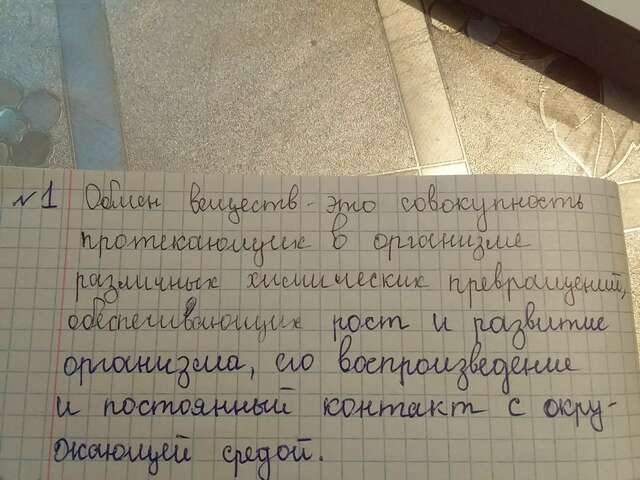 №1 Обмен веществ - это совокупность
протекающих в организме
различных химических превращений,
обеспечивающих рост и развитие
организма, его воспроизведение
и постоянный контакт с окру-
жающей средой.